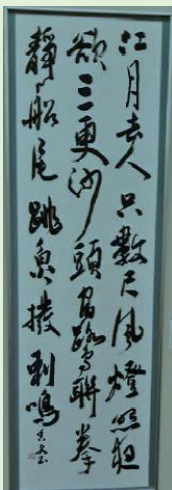 江月去人只數尺風燈照夜
欲三更沙頭宿鷺聯拳
靜船尾跳魚撥剌鳴